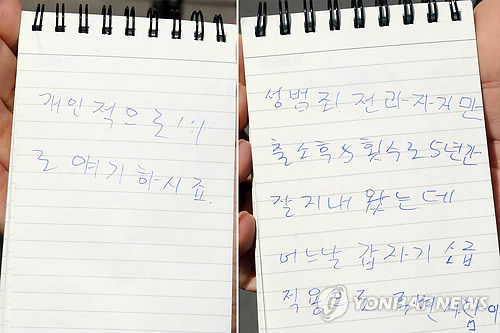 개인적으로 1:1
로 얘기하시죠.
성범죄 전과자지만
출소후 횟수로 5년간
잘 지내 왔는데
어느날 갑자기 소급
적용으로 주변사람이
YONHAP NEWS